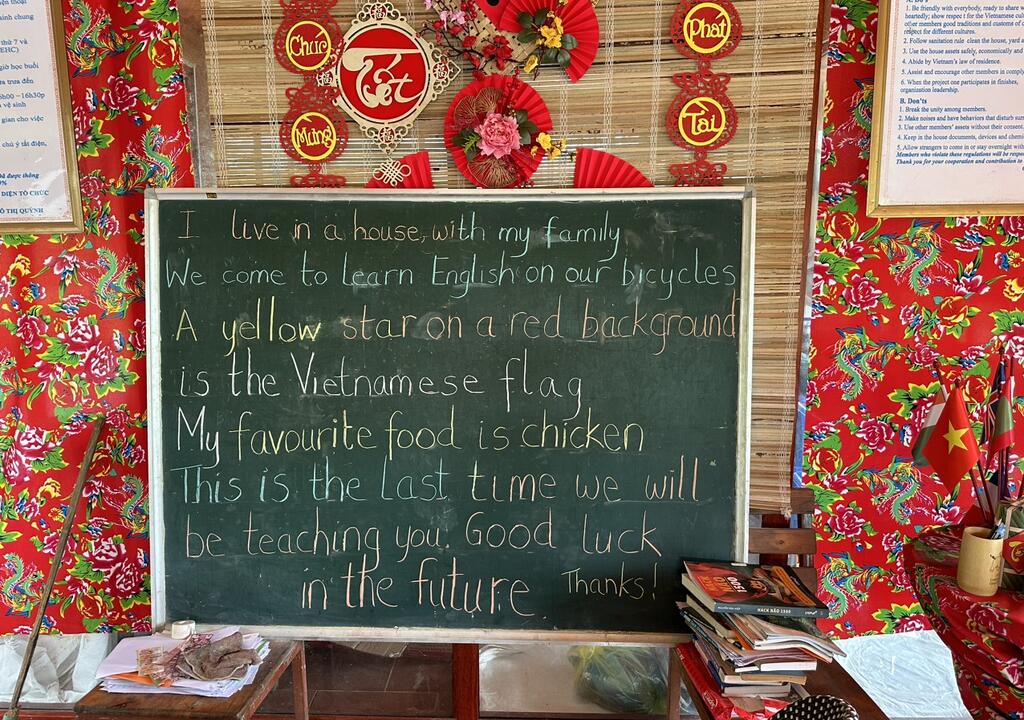 Chúc
Mừng
Tết
Phát
Tài
điện thoại
sinh chung
thứ 7 và
giờ học buổi
trưa đến
16h30p
vệ sinh
gian cho việc
chú ý tắt điện,
được thông
DIỆN TỔ CHỨC
THỊ QUỲNH
1. Be friendly with everyone, ready to share
heartedly; show respect for the Vietnamese
other members good traditions and customs of
respect for different cultures.
2. Follow sanitation rule clean the house, yard
3. Use the house assets safely, economically and
4. Abide by Vietnam's law of residence.
5. Assist and encourage other members in
6. When the project one participates in finishes,
organization leadership.
B. Don'ts
1. Break the unity among members.
2. Make noises and have behaviors that disturb
3. Use other members' assets without their consent.
4. Keep in the house documents, devices and
5. Allow strangers to come in or stay overnight
Members who violate these regulations will be
Thank you for your cooperation and contribution to
I live in a house, with my family
We come to learn English on our bicycles
A yellow star on a red background
is the Vietnamese flag
My favourite food is chicken
This is the last time we will
be teaching you. Good luck
in the future Thanks!
HACK NÃO 1500